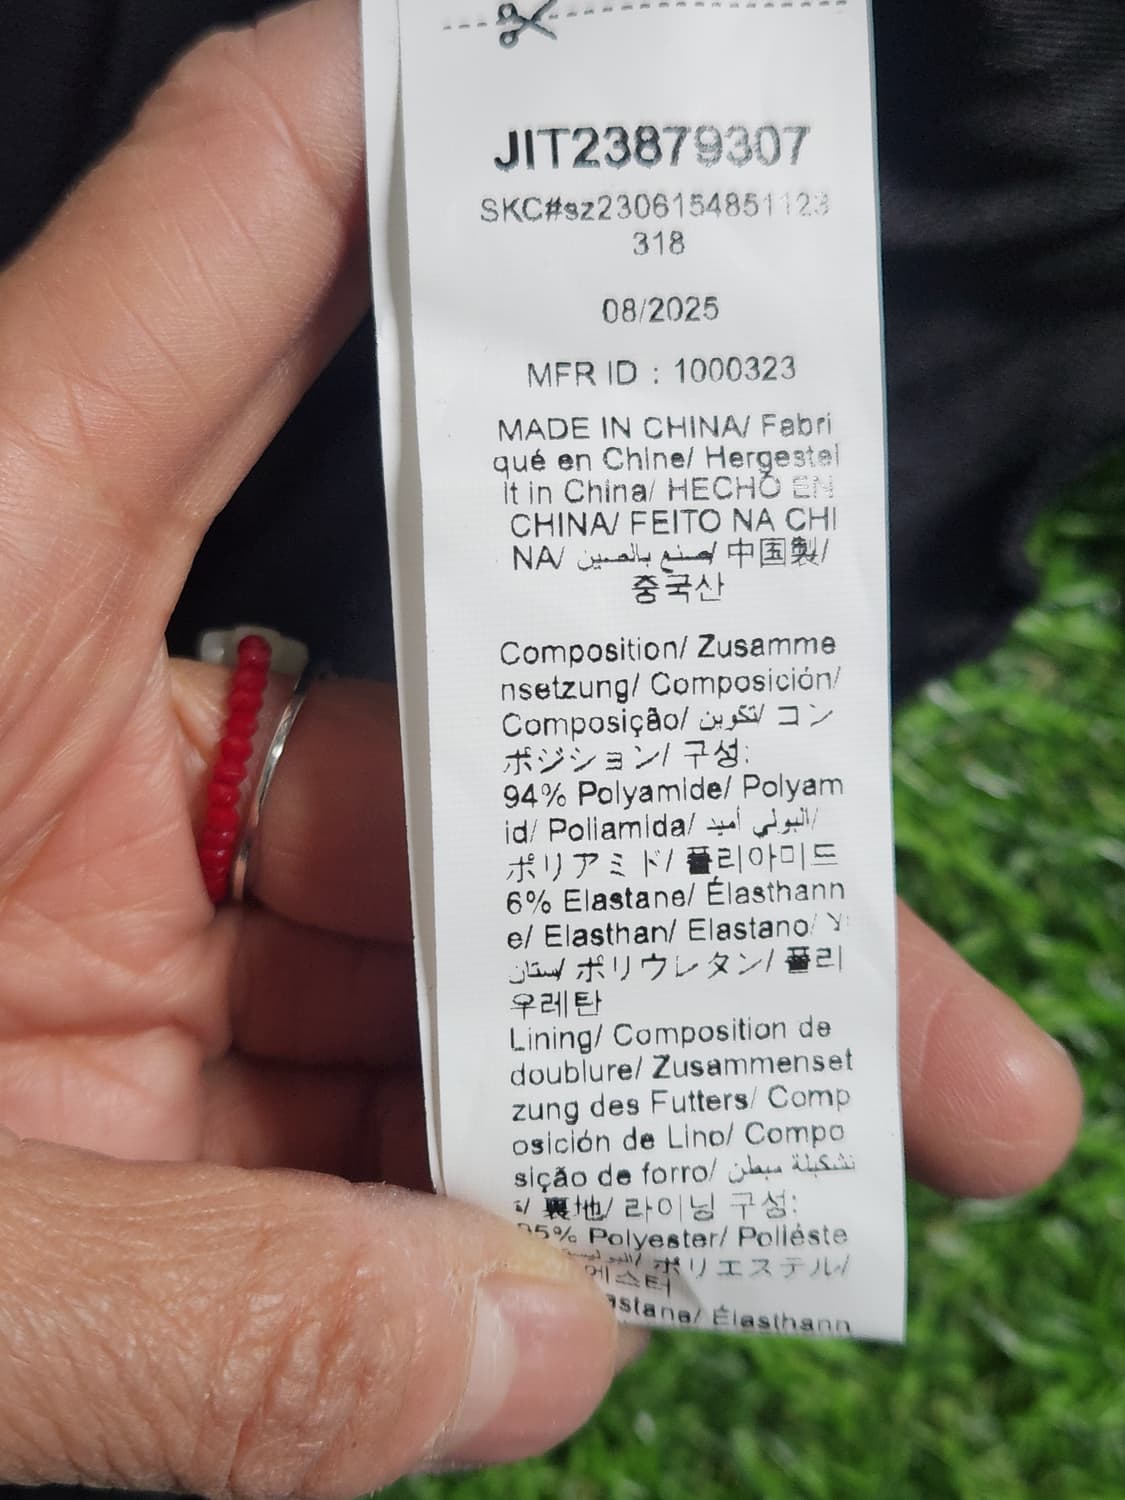 JIT23879307
SKC#sz2306154851123
318
08/2025
MFR ID : 1000323
MADE IN CHINA/ Fabri
qué en Chine/ Hergestel
lt in China/ HECHO EN
CHINA/ FEITO NA CHI
NA/ صنع بالصين/ 中国製/
중국산
Composition/ Zusamme
nsetzung/ Composición/
Composição/ تكوين/ コン
ポジション/ 구성:
94% Polyamide/ Polyam
id/ Poliamida/ البولي أميد/
ポリアミド/ 폴리아미드
6% Elastane/ Élasthann
e/ Elasthan/ Elastano/
ستان/ ポリウレタン/ 폴리
우레탄
Lining/ Composition de
doublure/ Zusammenset
zung des Futters/ Comp
osición de Lino/ Compo
sição de forro/ تشكيلة مبطن
ة/ 裏地/ 라이닝 구성:
95% Polyester/ Poliéste
ポリエステル/
에스터
astane/ Élasthann